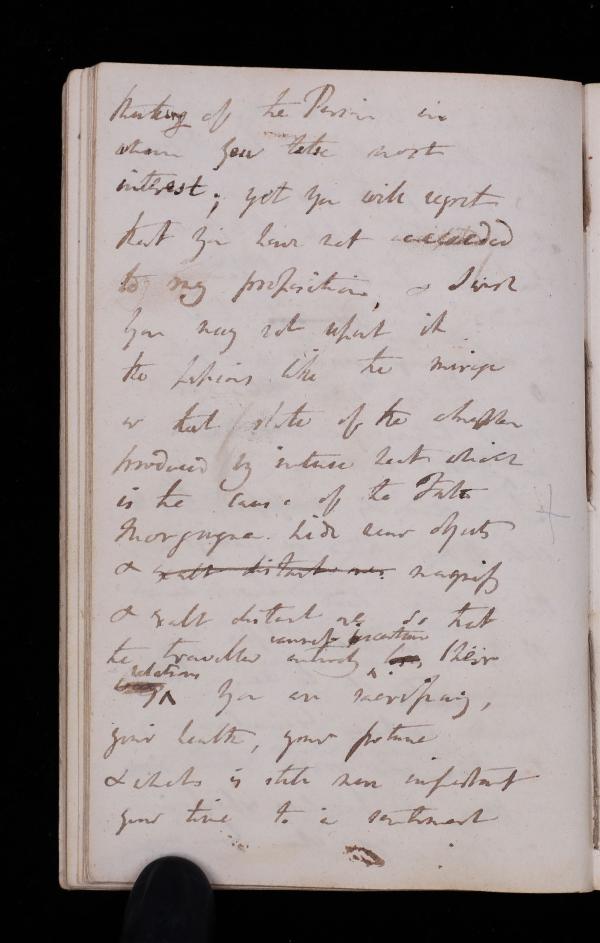 thinking of the Person in
whom you take most
interest; yet you will regret
that you have not acceeded
to my proposition, & I wish
you may not repent it
the passions like the mirage
or that state of the atmosphere
produced by intense heat which
is the cause of the Fata
Morgagna. hide near objects
& exalt distant ones magnify
& exalt distant ones so that
cannot ascertain
the traveller entirely their
relations
You are sacrificing,
your health, your fortune
& what is still more important
your time to a sentiment